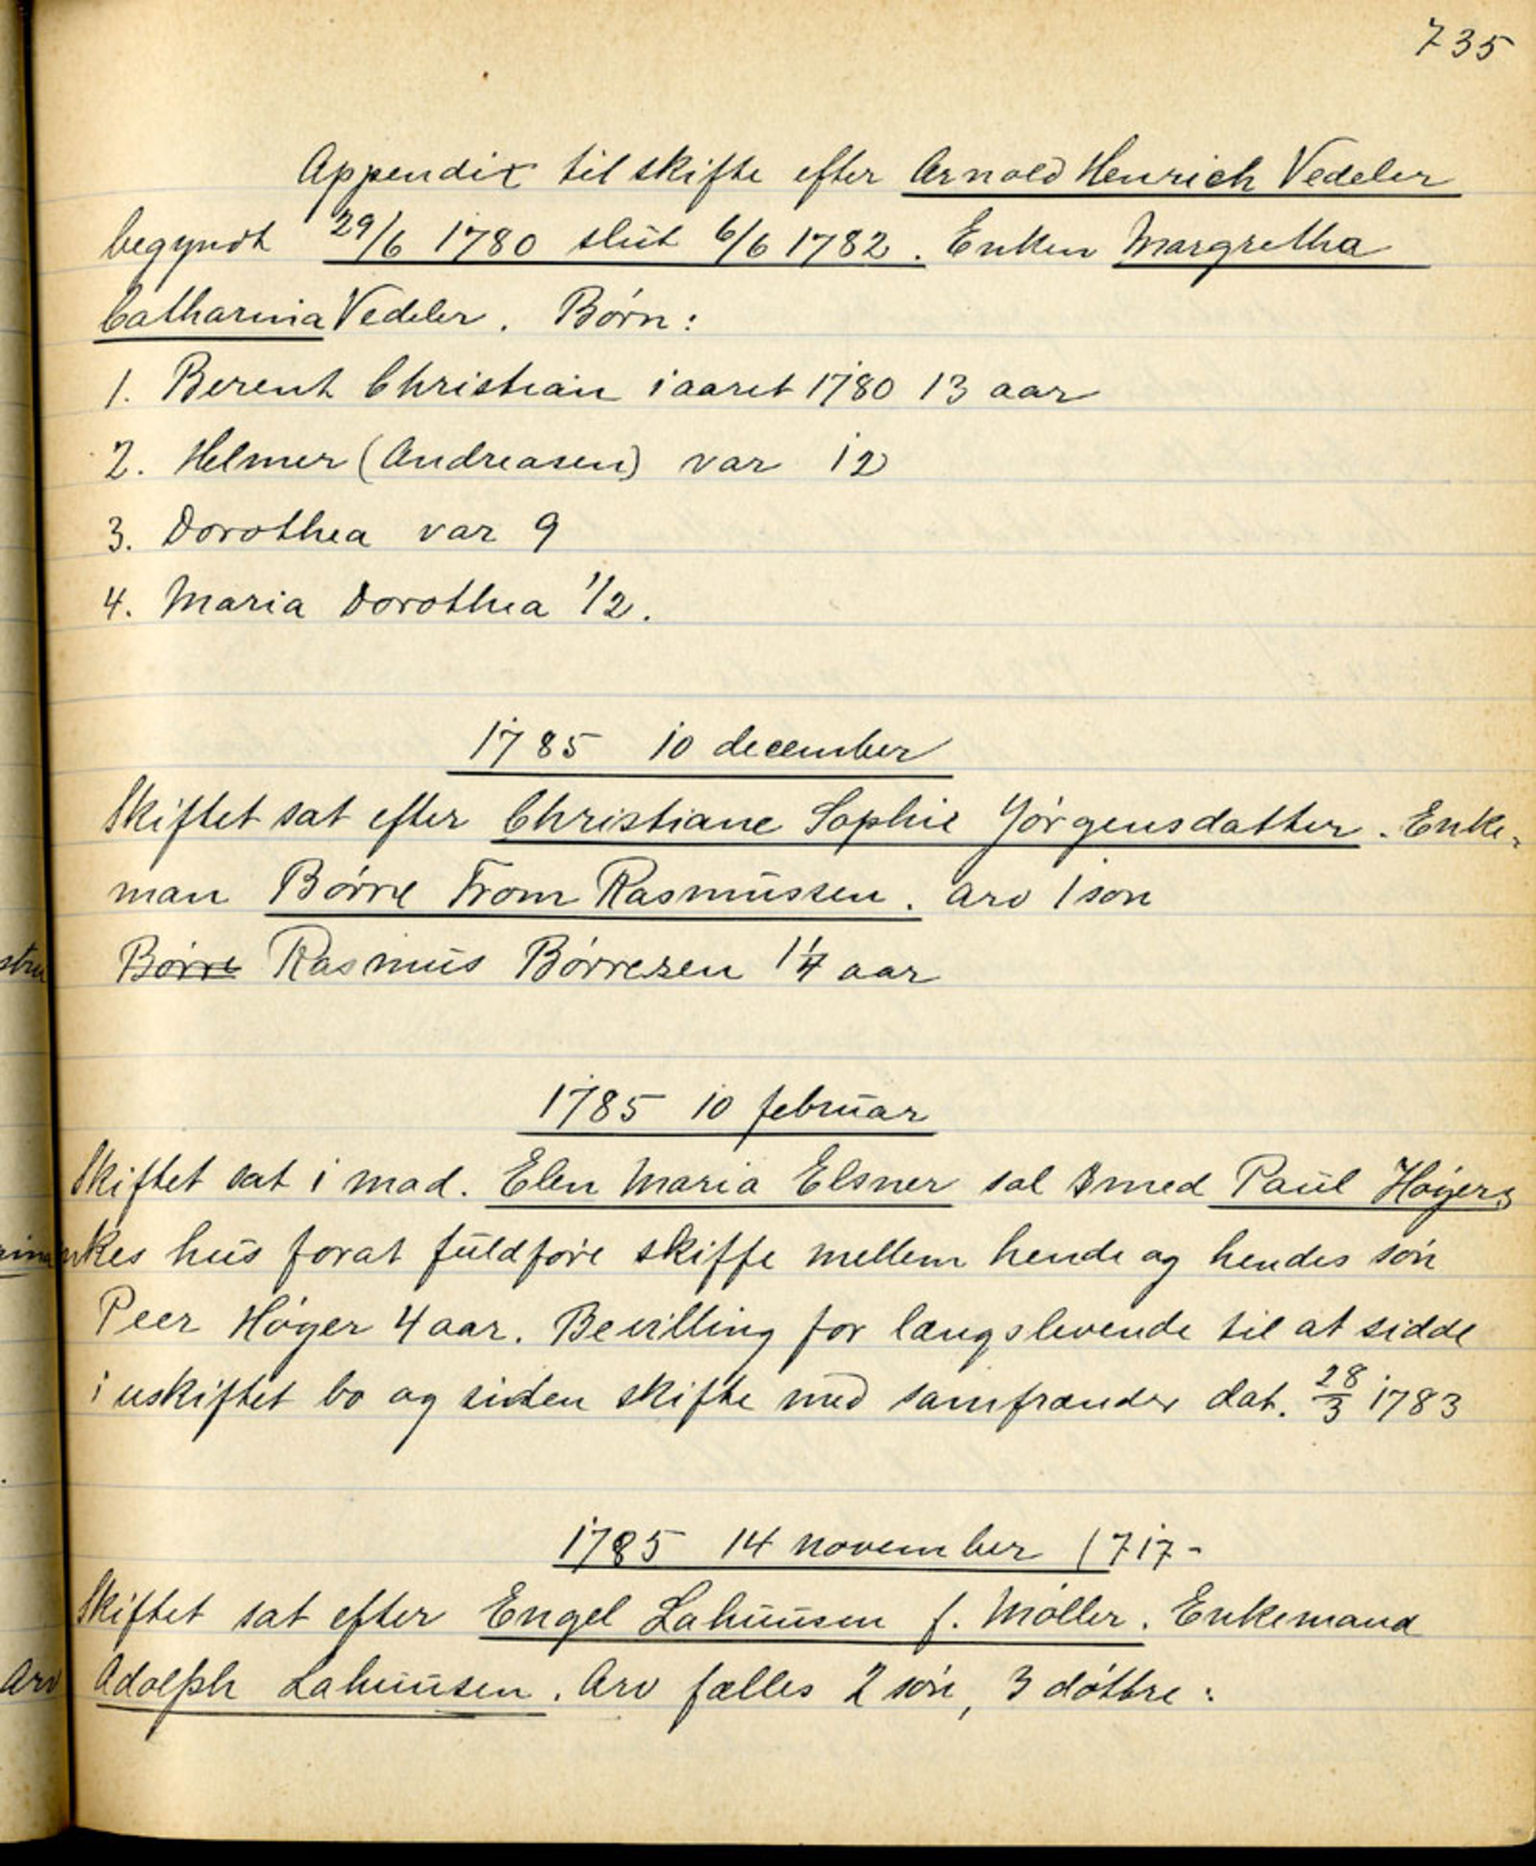 735
Appendix til skifte efter Arnold Henrich Vedeler
begyndt 29/6 1780 slut 6/6 1782. Enken Margretha
Catharina Vedeler. Børn:
1. Berent Christian i aaret 1780 13 aar
2. Helmer (Andreasen) var 12
3. Dorothea var 9
4. Maria Dorothea 1/2.
1785 10 december
Skiftet sat efter Christiane Sophie Jørgensdatter. Enke-
man Børre From Rasmussen. Arv 1 søn
Børre Rasmus Børresen 1 1/4 aar
1785 10 februar
Skiftet sat i mad. Elen Maria Elsner sal Smed Paul Høyers
enkes hus forat fuldføre skifte mellem hende og hendes søn
Peer Høyer 4 aar. Bevilling for længslevende til at sidde
i uskiftet bo og siden skifte med samfrænder dat. 28/3 1783
1785 14 november (717-
Skiftet sat efter Engel Lahuusen f. Møller. Enkemand
Adolph Lahuusen. Arv fælles 2 søn, 3 døttre: